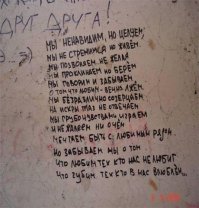 ДРУГ ДРУГА!
МЫ НЕНАВИДИМ, НО ЦЕЛУЕМ,
МЫ НЕ СТРЕМИМСЯ НО ЖИВЁМ
МЫ ПОЗВОЛЯЕМ, НЕ ЖЕЛАЯ
МЫ ПРОКЛИНАЕМ НО БЕРЁМ
МЫ ГОВОРИМ И ЗАБЫВАЕМ
О ТОМ ЧТО ЛЮБИМ - ВЕЧНО ЛЖЁМ
МЫ БЕЗРАЗЛИЧНО СОЗЕРЦАЕМ
НА ИСКРЫ ГЛАЗ НЕ ОТВЕЧАЕМ
МЫ ГРУБО ЧУВСТВАМИ ИГРАЕМ
И НЕ ЖАЛЕЕМ НИ О ЧЁМ
МЕЧТАЕМ БЫТЬ С ЛЮБИМЫМ РЯДОМ
НО ЗАБЫВАЕМ МЫ О ТОМ
ЧТО ЛЮБИМ ТЕХ КТО НАС НЕ ЛЮБИТ
ЧТО ГУБИМ ТЕХ КТО В НАС ВЛЮБЛЁН...